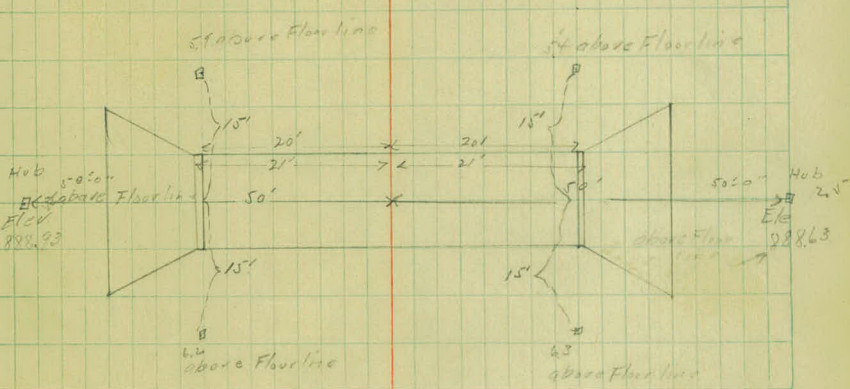 5.9 above Flourline
5.4 above Flourline
15'
15'
20'
20'
21'
21'
Hub
50'-0"
above Flourline
50'
50'
50'-0"
Hub
2.5
Elev
888.93
Ele
288.63
above Flour
line
15'
15'
6.2
above Flourline
6.3
above Flourline